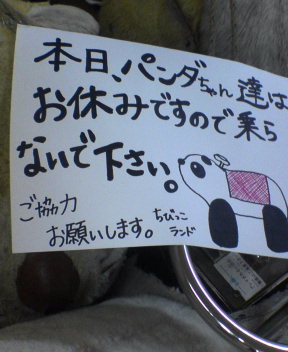 本日、パンダちゃん達は
お休みですので乗ら
ないで下さい。
ご協力
お願いします。
ちびっこ
ランド